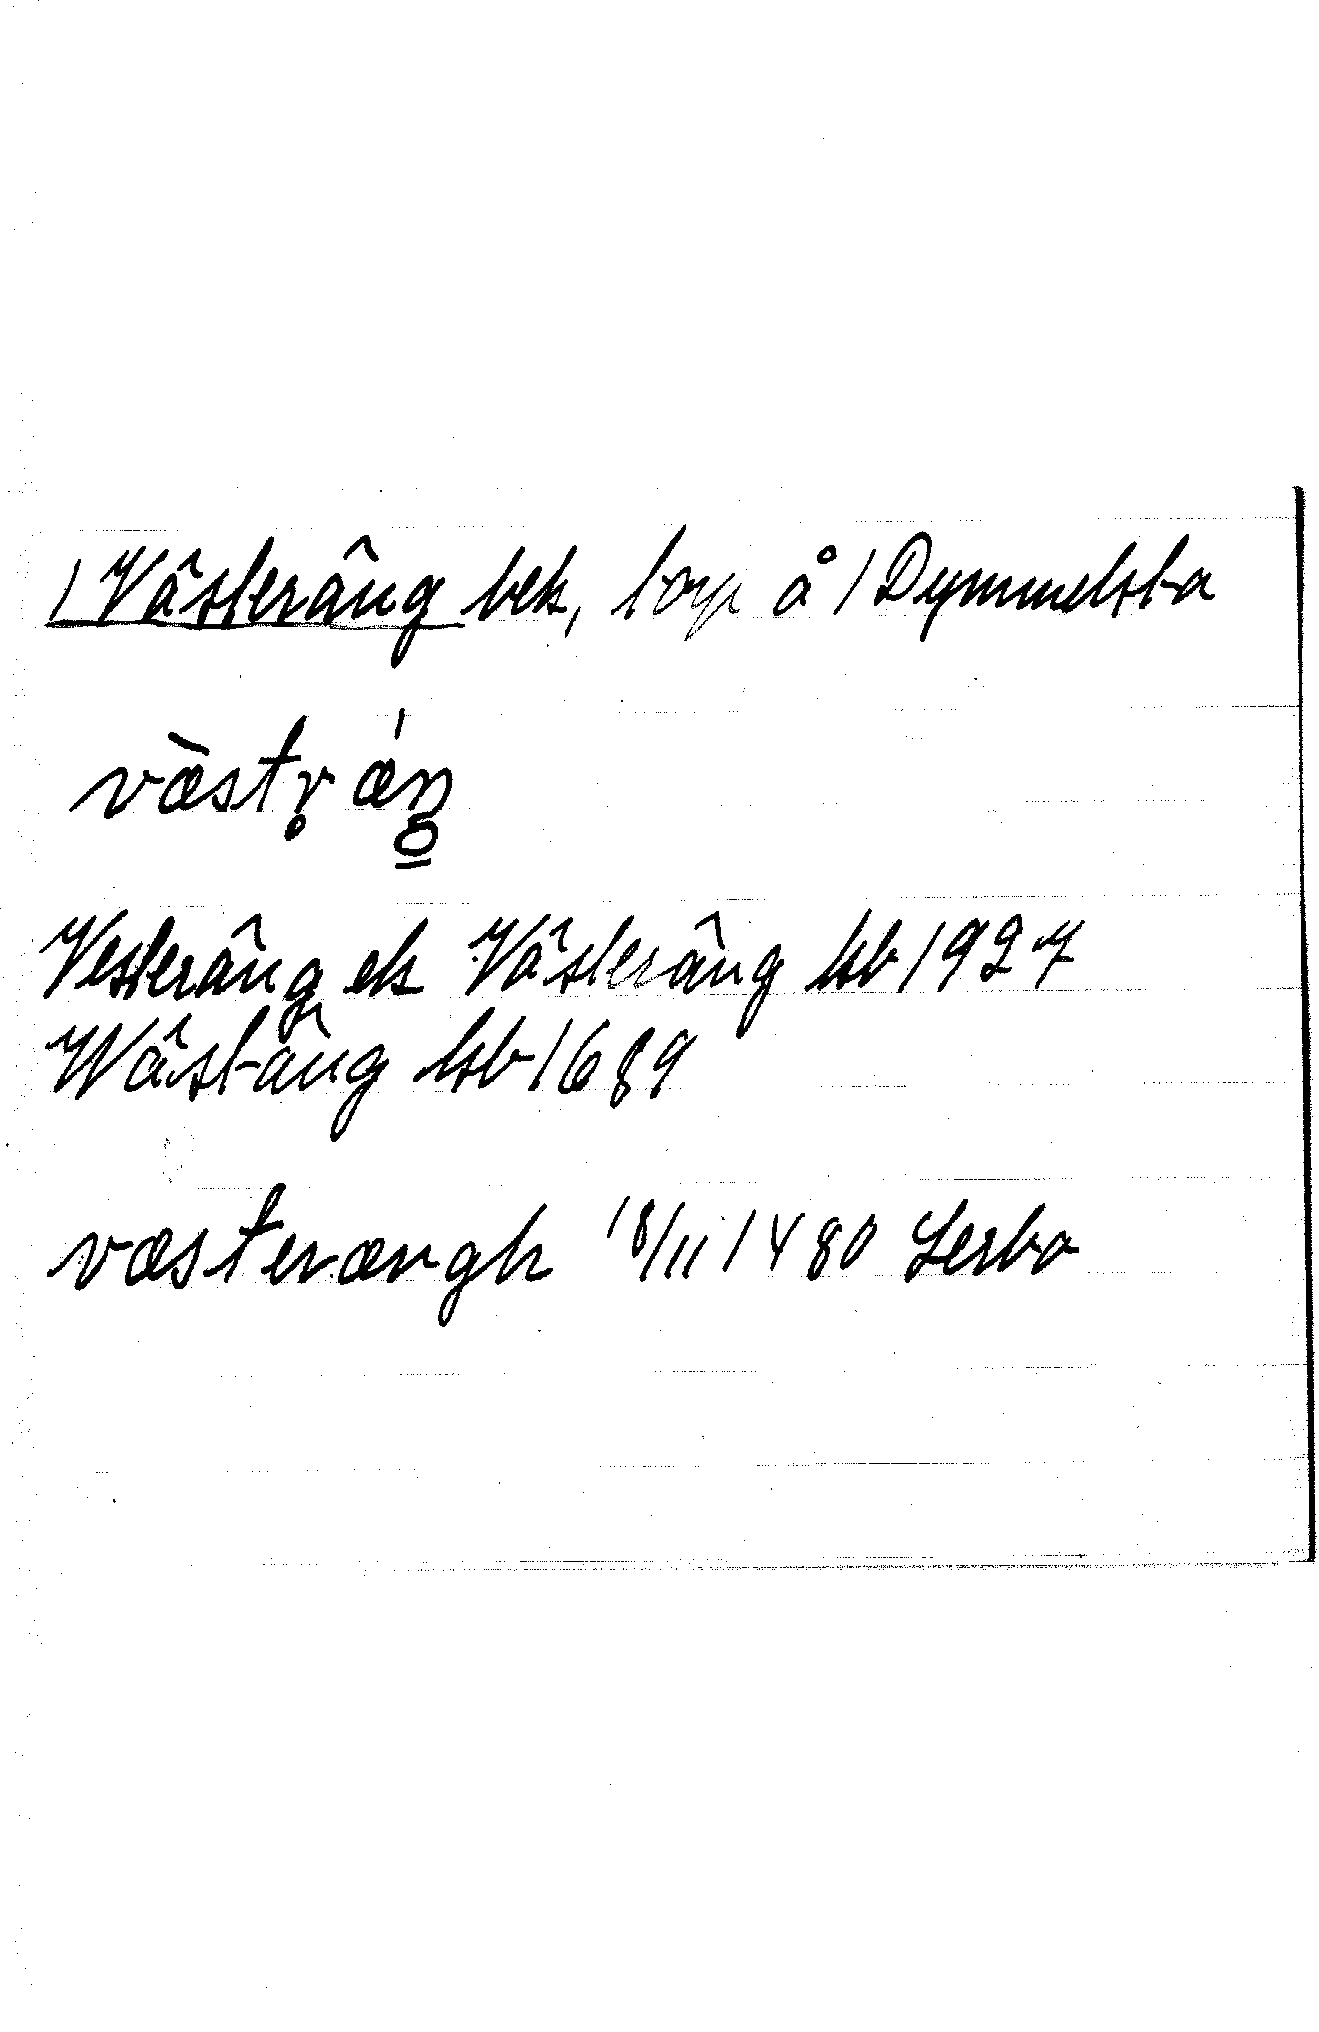 1 Västeräng bek, torp å 1 Dymmelsta
vàstr̥ ǽŋ
Vesteräng ek Västeräng hb 1927
Wästäng hb 1689
væsterængh 18/11 1480 Lerbo